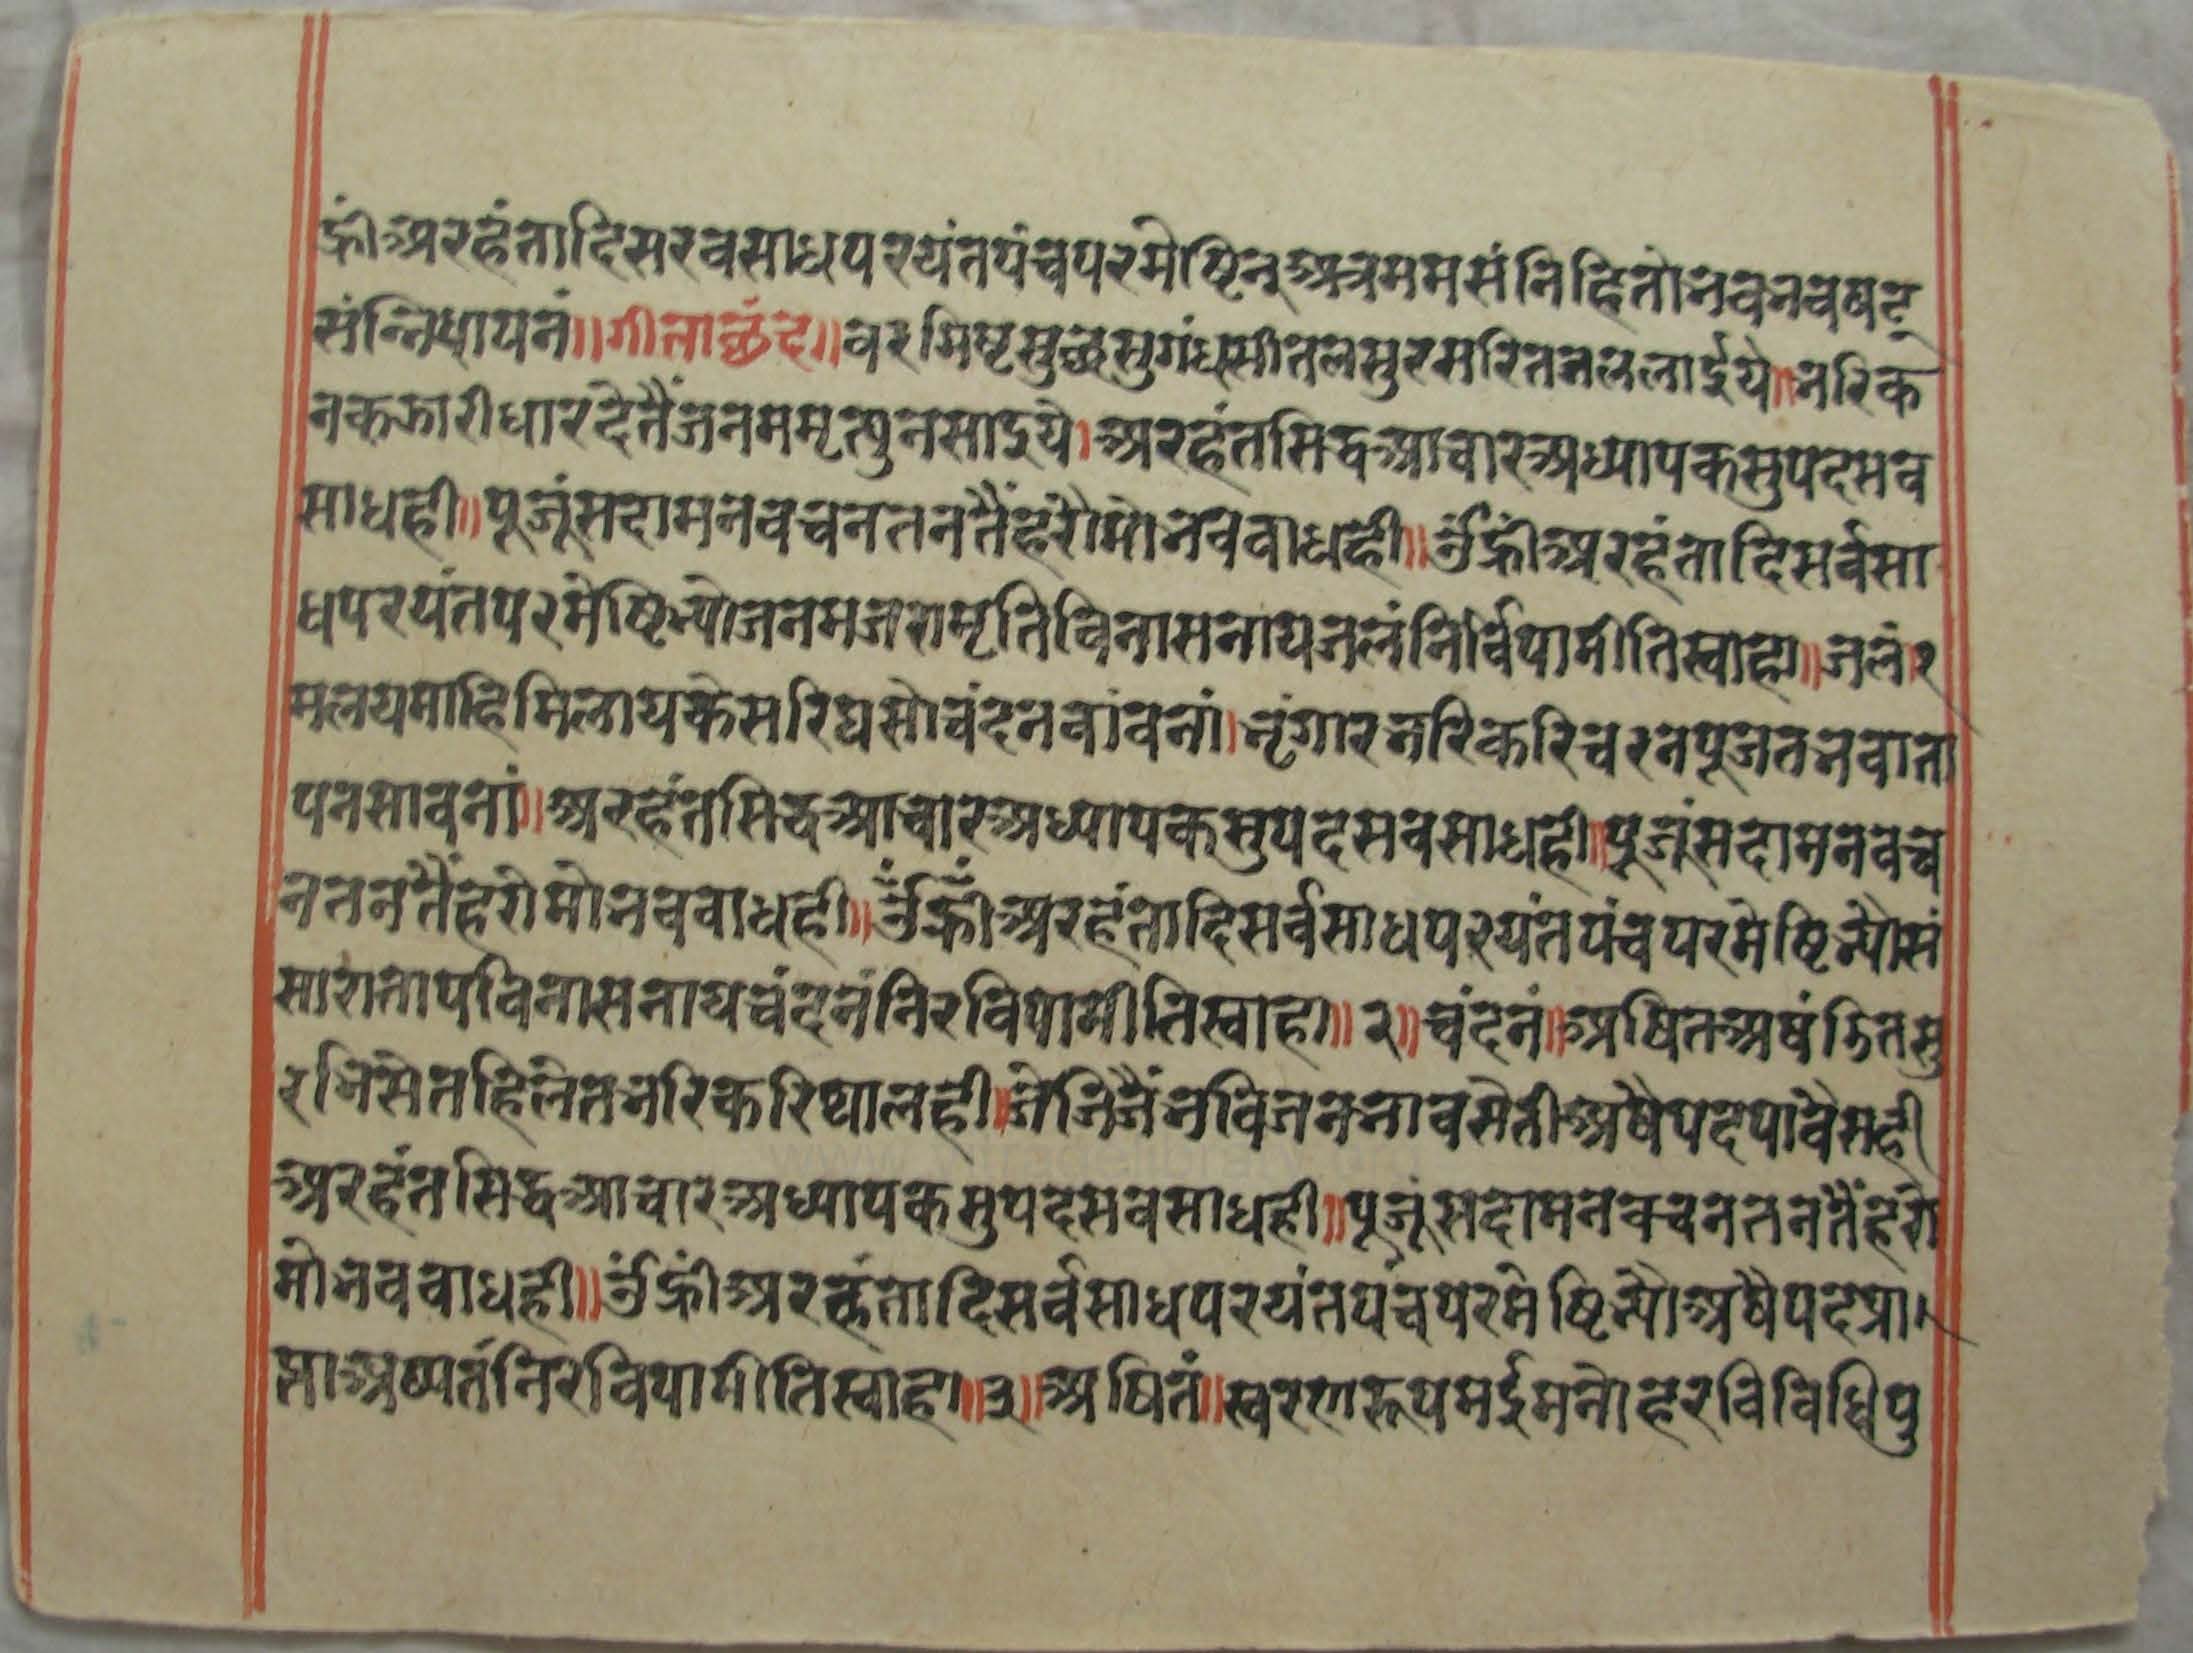 ह्रीं अरहंतादिसरवसाधपरयंतपंचपरमेष्टिन् अत्रममसंनिहितोभवभवषट्
संन्निधायनं ॥ गीताछंद ॥ वरमिष्टसुछसुगंधसीतलसुरसरितजललाईये ॥ भरिक
नकझारीधारदेतैंजनममृत्युनसाइये । अरहंतसिद्धआचारअध्यापकसुपदसब
साधही ॥ पूजूंसदामनवचनतनतैंहरौमोभवबाधही ॥ ॐह्रीं अरहंतादिसर्वसा
धपरयंतपरमेष्टिभ्योजनमजरामृतिविनासनायजलंनिर्विपामीतिस्वाहा ॥ जलं १
मलयमाहिमिलायकेसरिघसोचंदनबांवनां । भृंगारभरिकरिचरनपूजतभवाता
पनसावनां ॥ अरहंतसिद्धआचारअध्यापकसुपदसबसाधही ॥ पूजूंसदामनवच
नतनतैंहरोमोभवबाधही ॥ ॐह्रीं अरहंतादिसर्वसाधपरयंतपंचपरमेष्टिभ्यौसं
सारातापविनासनायचंदनंनिरविपामीतिस्वाहा ॥ २ ॥ चंदनं ॥ अषितअषंडितसु
रभिसेतहिलेतभरिकरिथालही ॥ जेजिजैंभविजनभावसेतीअषैपदपावैसही
अरहंतसिद्धआचारअध्यापकसुपदसबसाधही ॥ पूजूंसदामनवचनतनतैंहरो
मोभवबाधही ॥ ॐह्रीं अरहंतादिसर्वसाधपरयंतपंचपरमेष्टिभ्यौअषैपदप्रा
निरविपामीतिस्वाहा ॥ ३ ॥ अषितं ॥ स्वरणरूपमईमनोहरविविधिपु